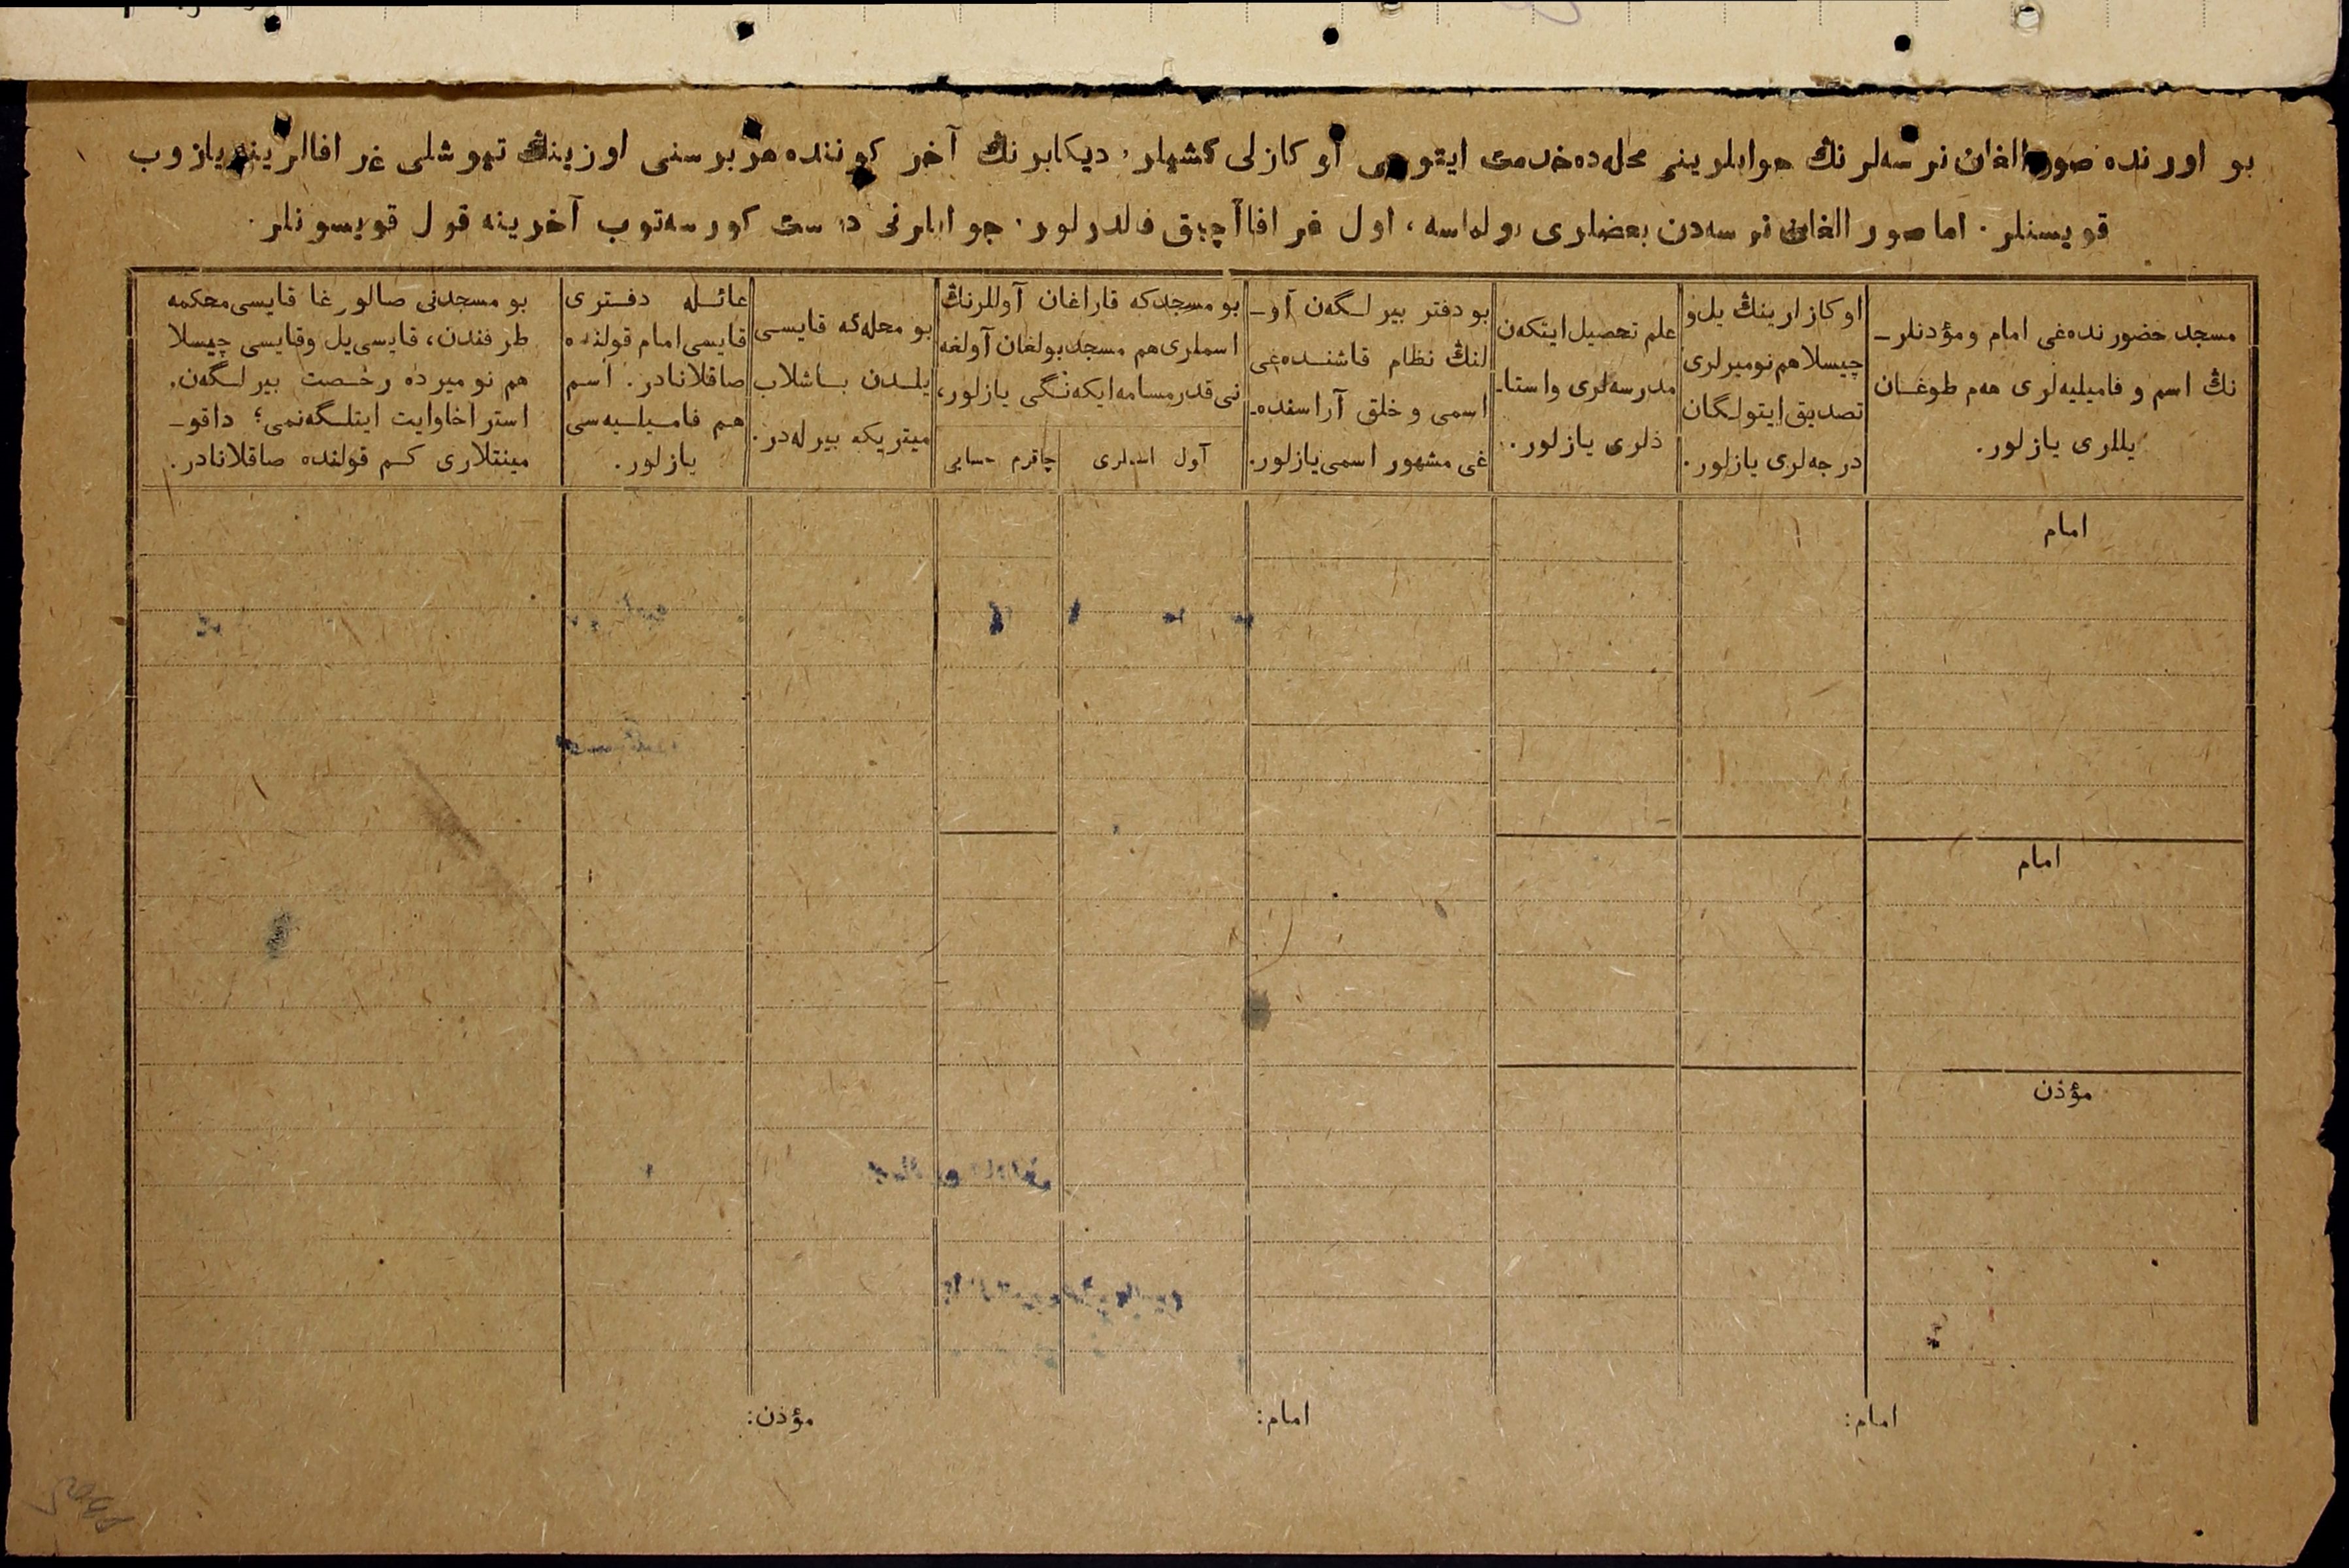 بو اورنده صورالغان نرسه‌لرنڭ جوابلرینی محله‌ده خدمت ایتوچی اوکازلی کشیلر، دیکابرنڭ آخر کوننده هر برسنی اوزینڭ تیوشلی غرافالرینه یازوب
قویسنلر. اما صورالغان نرسه‌دن بعضلری بولماسه، اول غرافا آچیق قالدرلور. جوابلرنی درست کورسه‌توب آخرینه قول قویسونلر.
مسجد حضورنده‌غی امام و مؤذنلر-
نڭ اسم و فامیلیه‌لری هەم طوغان
یللری یازلور.
اوکازلرینڭ یل و
چیسلا هم نومیرلری
تصدیق ایتولگان
درجه‌لری یازلور.
علم تحصیل ایتکەن
مدرسه‌لری و استا-
ذلری یازلور.
بو دفتر بیرلگەن آو-
لنڭ نظام قاشنده‌غی
اسمی و خلق آراسنده-
غی مشهور اسمی یازلور.
بو مسجدکه قاراغان آوللرنڭ
اسملری هم مسجد بولغان آولغه
نی قدر مسافه ایکەنگی یازلور،
آول اسملری
چاقرم حسابی
بو محله‌گه قایسی
یلدن باشلاب
میتریکه بیرله‌در.
عائله دفتری
قایسی امام قولنده
صاقلانادر. اسم
هم فامیلیه‌سی
یازلور.
بو مسجدنی صالورغا قایسی محکمه
طرفندن، قایسی یل وقایسی چیسلا
هم نومیرده رخصت بیرلگەن،
استراخاوایت ایتلگەنمی؟ داقو-
مینتلاری کم قولنده صاقلانادر.
امام
امام
مؤذن
امام:
امام:
مؤذن: